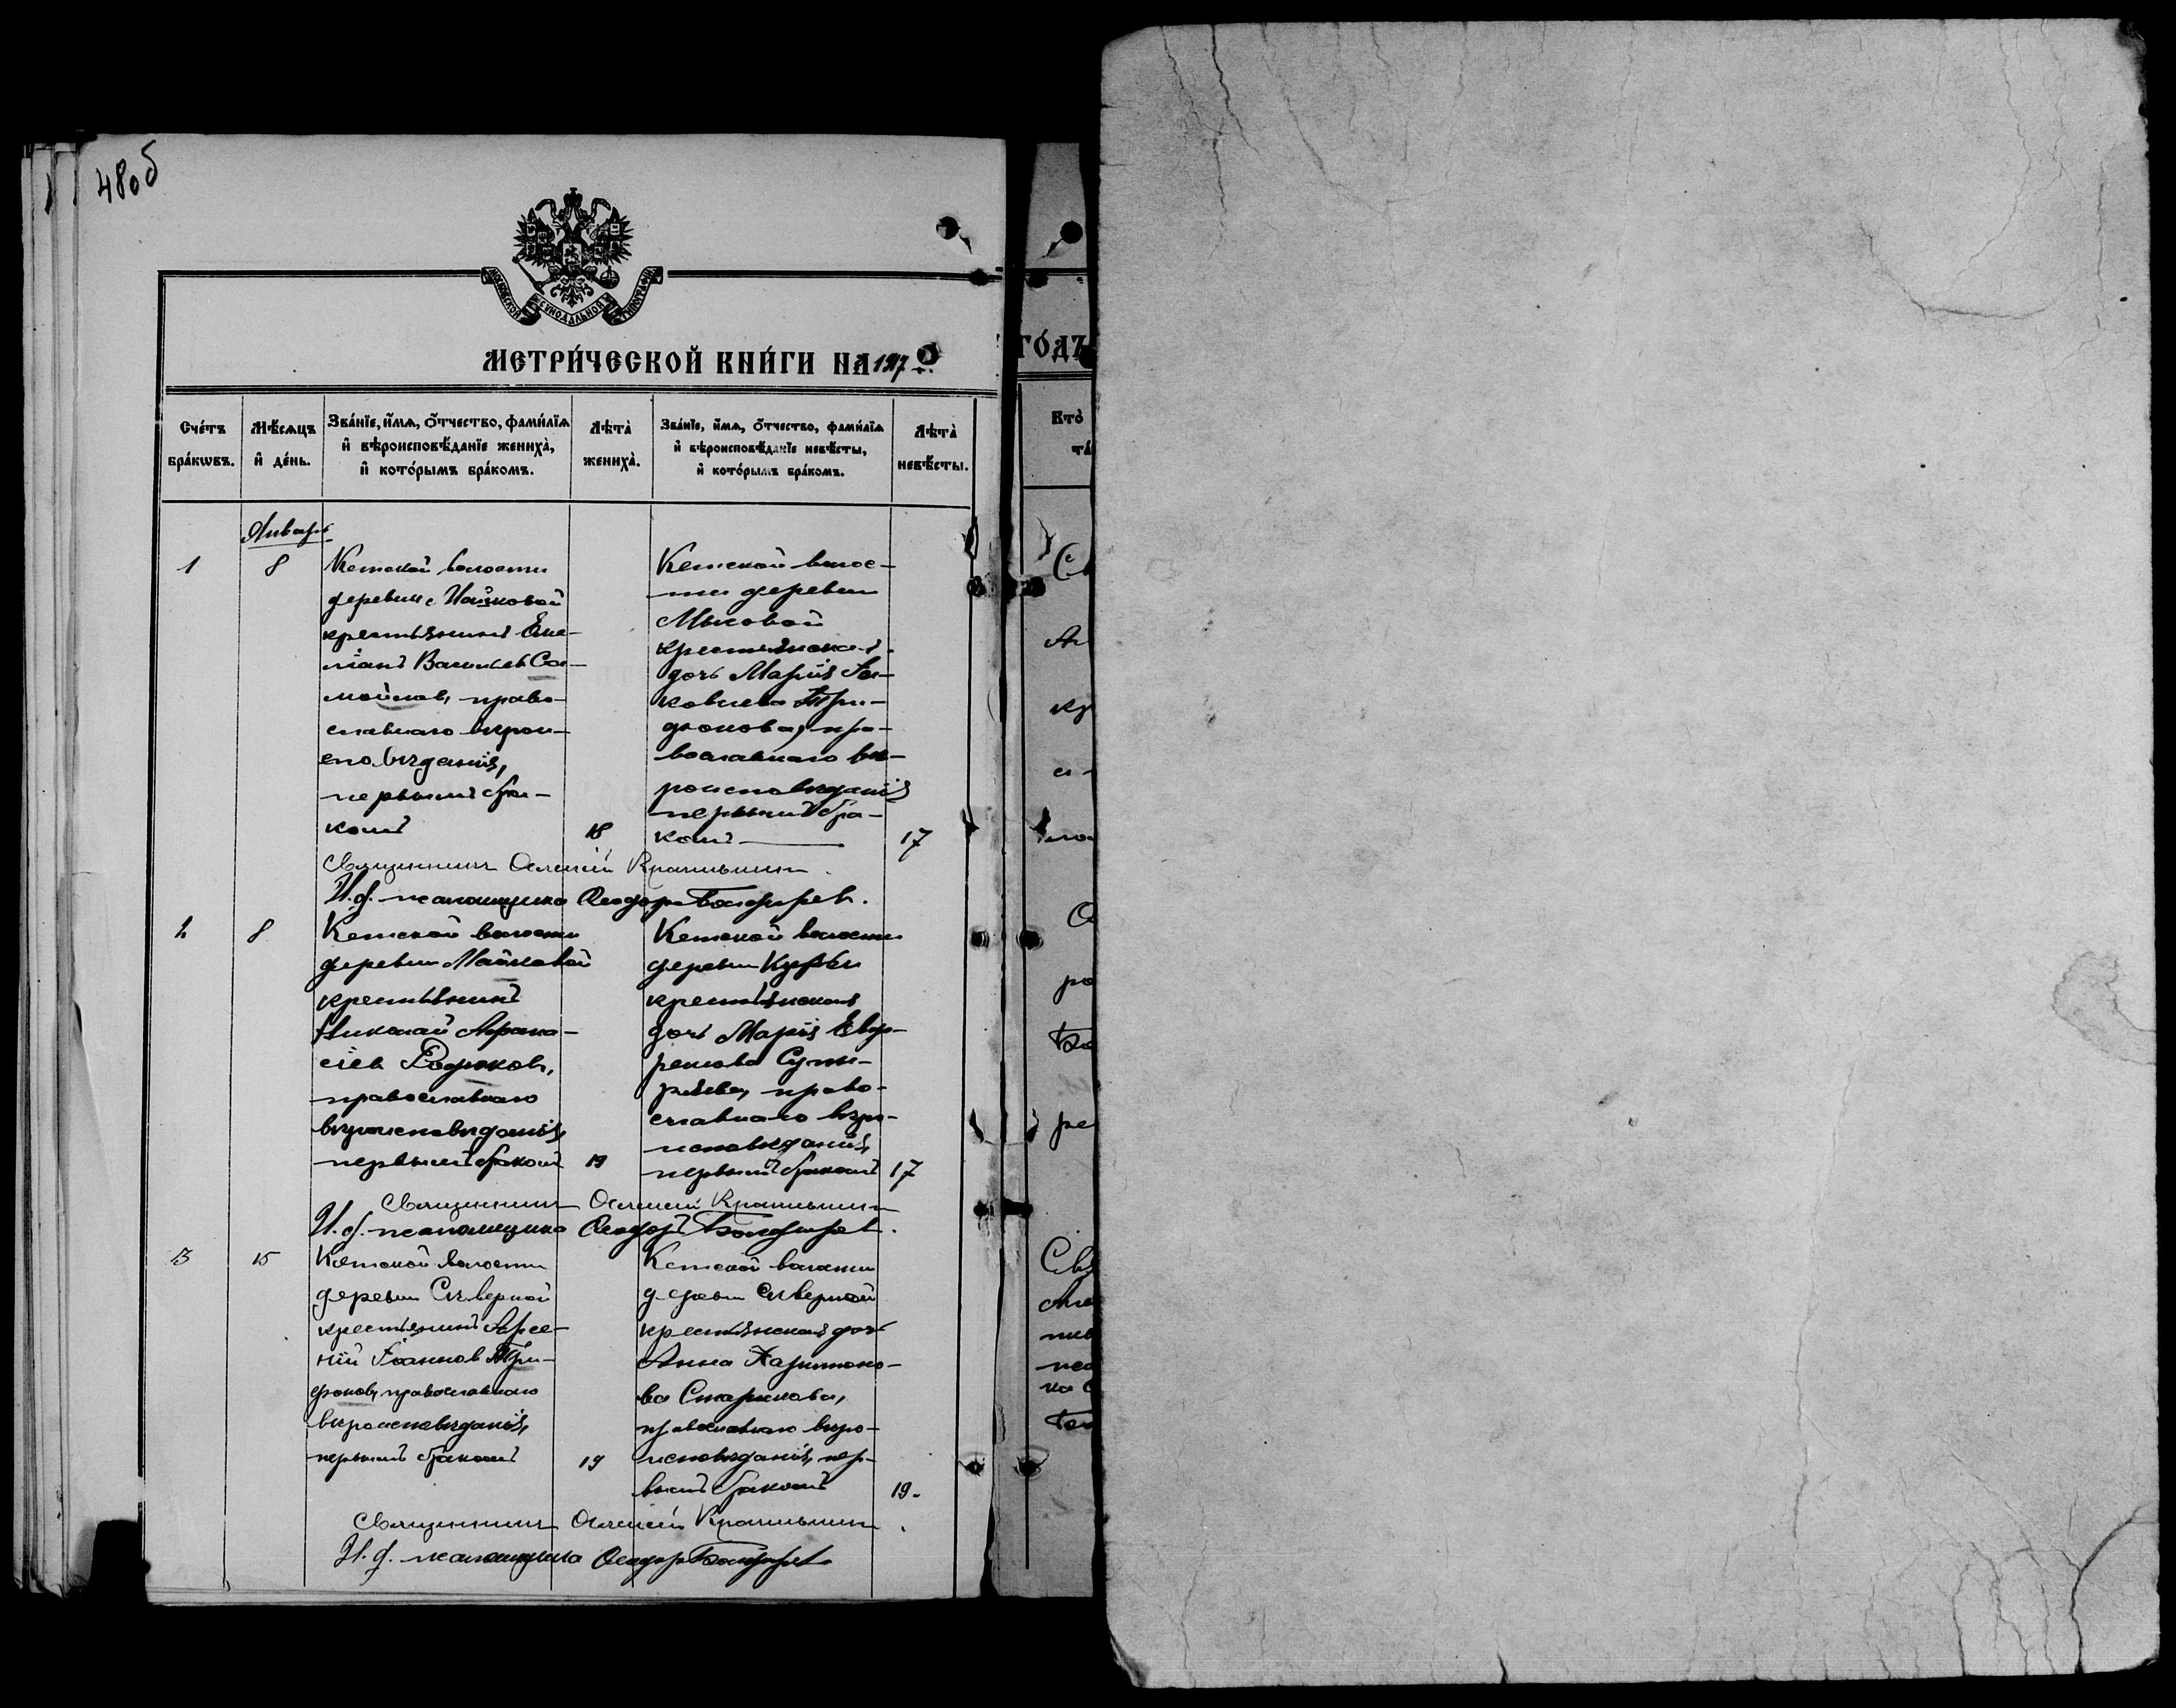 480б
МОСКОВСКОЙ СѴНОДАЛЬНОЙ ТИПОГРАФІИ
МЕТРИ́ЧЕСКОЙ КНИ́ГИ НА 1917
ГО́ДЪ
Сче́тъ бра́кѡвъ.
Мѣ́сѧцъ и҆ де́нь.
Зва́нїе, и҆́мѧ, ѻ҆́тчество, фами́лїѧ и҆ вѣроисповѣ́данїе жениха̀, и҆ кото́рымъ бра́комъ.
Лѣта̀ жениха̀.
Зва́нїе, и҆́мѧ, ѻ҆́тчество, фами́лїѧ и҆ вѣроисповѣ́данїе невѣ́сты, и҆ кото́рымъ бра́комъ.
Лѣта̀ невѣ́сты.
Кто̀
Январь
1
8
Кетской волости
деревни
крестьянинъ Еме-
ліанъ Васильев Са-
мойлов, право-
славнаго вѣрои-
сповѣданія,
первымъ бра-
комъ
18
Кетской волос-
ти деревни
крестьянская
дочь Марія Іа-
ковлева Три-
фонова, пра-
вославнаго вѣ-
роисповѣданія
первымъ бра-
комъ
17
Священникъ Алексій
И.д. псаломщика Ѳеодоръ
2
8
Кетской волости
деревни Майковой
крестьянинъ
Николай Афана-
сіев Родюков,
православнаго
вѣроисповѣданія,
первымъ бракомъ
19
Кетской волости
деревни Курьи
крестьянская
дочь Марія Евф-
ремова
православнаго вѣро-
исповѣданія,
первымъ бракомъ
17
Священникъ Алексій
И.д. псаломщика Ѳеодоръ
3
15
Кетской волости
деревни Сѣверной
крестьянинъ Арсе-
ній Іоаннов Три-
фонов, православнаго
вѣроисповѣданія,
первымъ бракомъ
19
Кетской волости
деревни Сѣверной
крестьянская дочь
Анна Харитоно-
ва Старикова,
православнаго вѣро-
исповѣданія, пер-
вымъ бракомъ
19.
Священникъ Алексій
И.д. псаломщика Ѳеодоръ